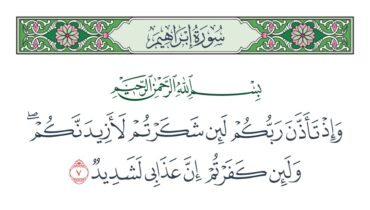 سُورَةُ إِبْرَاهِيمَ
بِسْمِ ٱللَّهِ ٱلرَّحْمَٰنِ ٱلرَّحِيمِ
وَإِذْ تَأَذَّنَ رَبُّكُمْ لَئِن شَكَرْتُمْ لَأَزِيدَنَّكُمْ ۖ
وَلَئِن كَفَرْتُمْ إِنَّ عَذَابِى لَشَدِيدٌ ٧